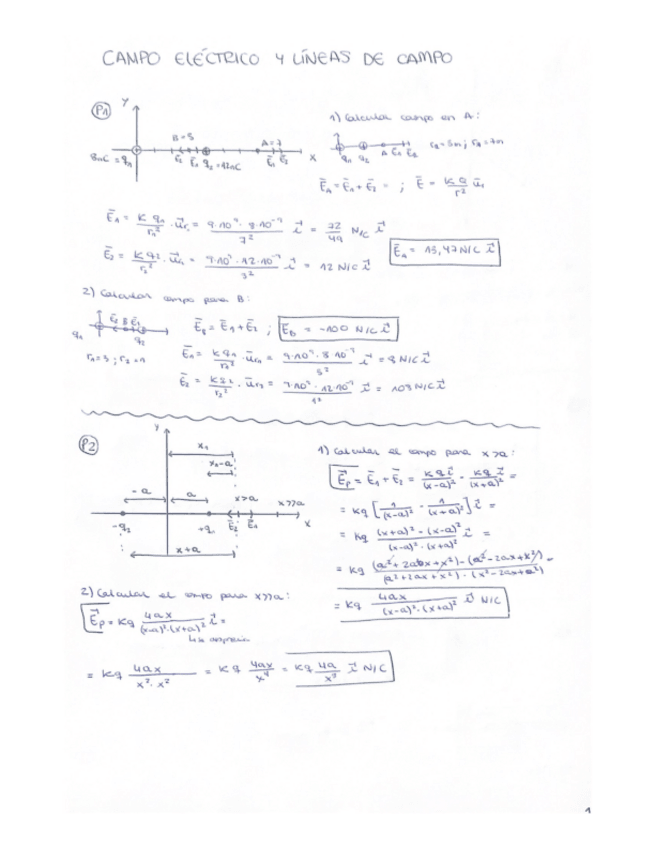 CAMPO ELÉCTRICO Y LÍNEAS DE CAMPO
P1
Y
1) Calcular campo en A:
B=5
A=7
8nC = q₁
E₂ E₁ q₂ = 12nC
E₁ E₂
X
q₁ q₂ A E₁ E₂
r₂=3m; r₁=7m
E̅A = E̅₁ + E̅₂ = ; E̅ = KQ/r² u̅r
E̅₁ = K q₁/r₁² · u̅r₁ = 9·10⁹·8·10⁻⁹/7² i⃗ = 72/49 N/C i⃗
E̅₂ = K q₂/r₂² · u̅r₂ = 9·10⁹·12·10⁻⁹/3² i⃗ = 12 N/C i⃗
E̅A = 13,47 N/C i⃗
2) Calcular campo para B:
E₂ B E₁
q₁ q₂
E̅B = E̅₁ + E̅₂ ; E̅B = -100 N/C i⃗
r₁=3; r₂=1
E̅₁ = K q₁/r₁² · u̅r₁ = 9·10⁹·8·10⁻⁹/3² i⃗ = 8 N/C i⃗
E̅₂ = K q₂/r₂² · u̅r₂ = 9·10⁹·12·10⁻⁹/1² i⃗ = 108 N/C i⃗
P2
Y
x₁
x-a
-a
a
x>a
x>>a
-q₂
+q₁
E₂ E₁
X
x+a
1) Calcular el campo para x>a:
E⃗p = E̅₁ + E̅₂ = Kq i⃗/(x-a)² - Kq i⃗/(x+a)² =
= Kq [1/(x-a)² - 1/(x+a)²] i⃗ =
= Kq (x+a)² - (x-a)²/(x-a)²·(x+a)² i⃗ =
= Kq (a²+2ax+x²)-(a²-2ax+x²)/(a²+2ax+x²)·(x²-2ax+a²) =
= Kq 4ax/(x-a)²·(x+a)² i⃗ N/C
2) Calcular el campo para x>>a:
E⃗p = Kq 4ax/(x-a)²·(x+a)² i⃗ =
= Kq 4ax/x²·x² = Kq 4ax/x⁴ = Kq 4a/x³ i⃗ N/C
1